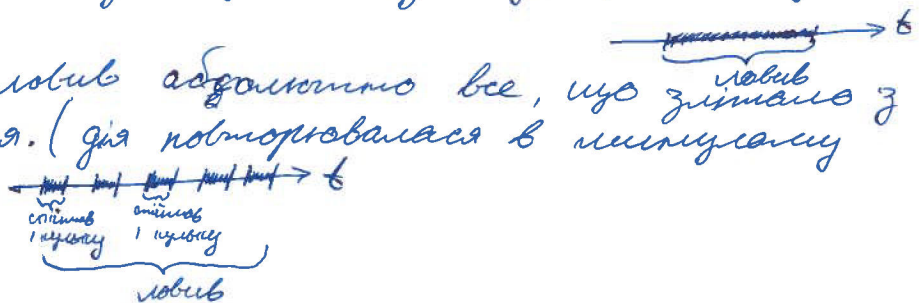 t
ловив
ловив абсолютно все, що злітало з
я. (дія повторювалася в минулому
t
спіймав спіймав
1 кульку 1 кульку
ловив